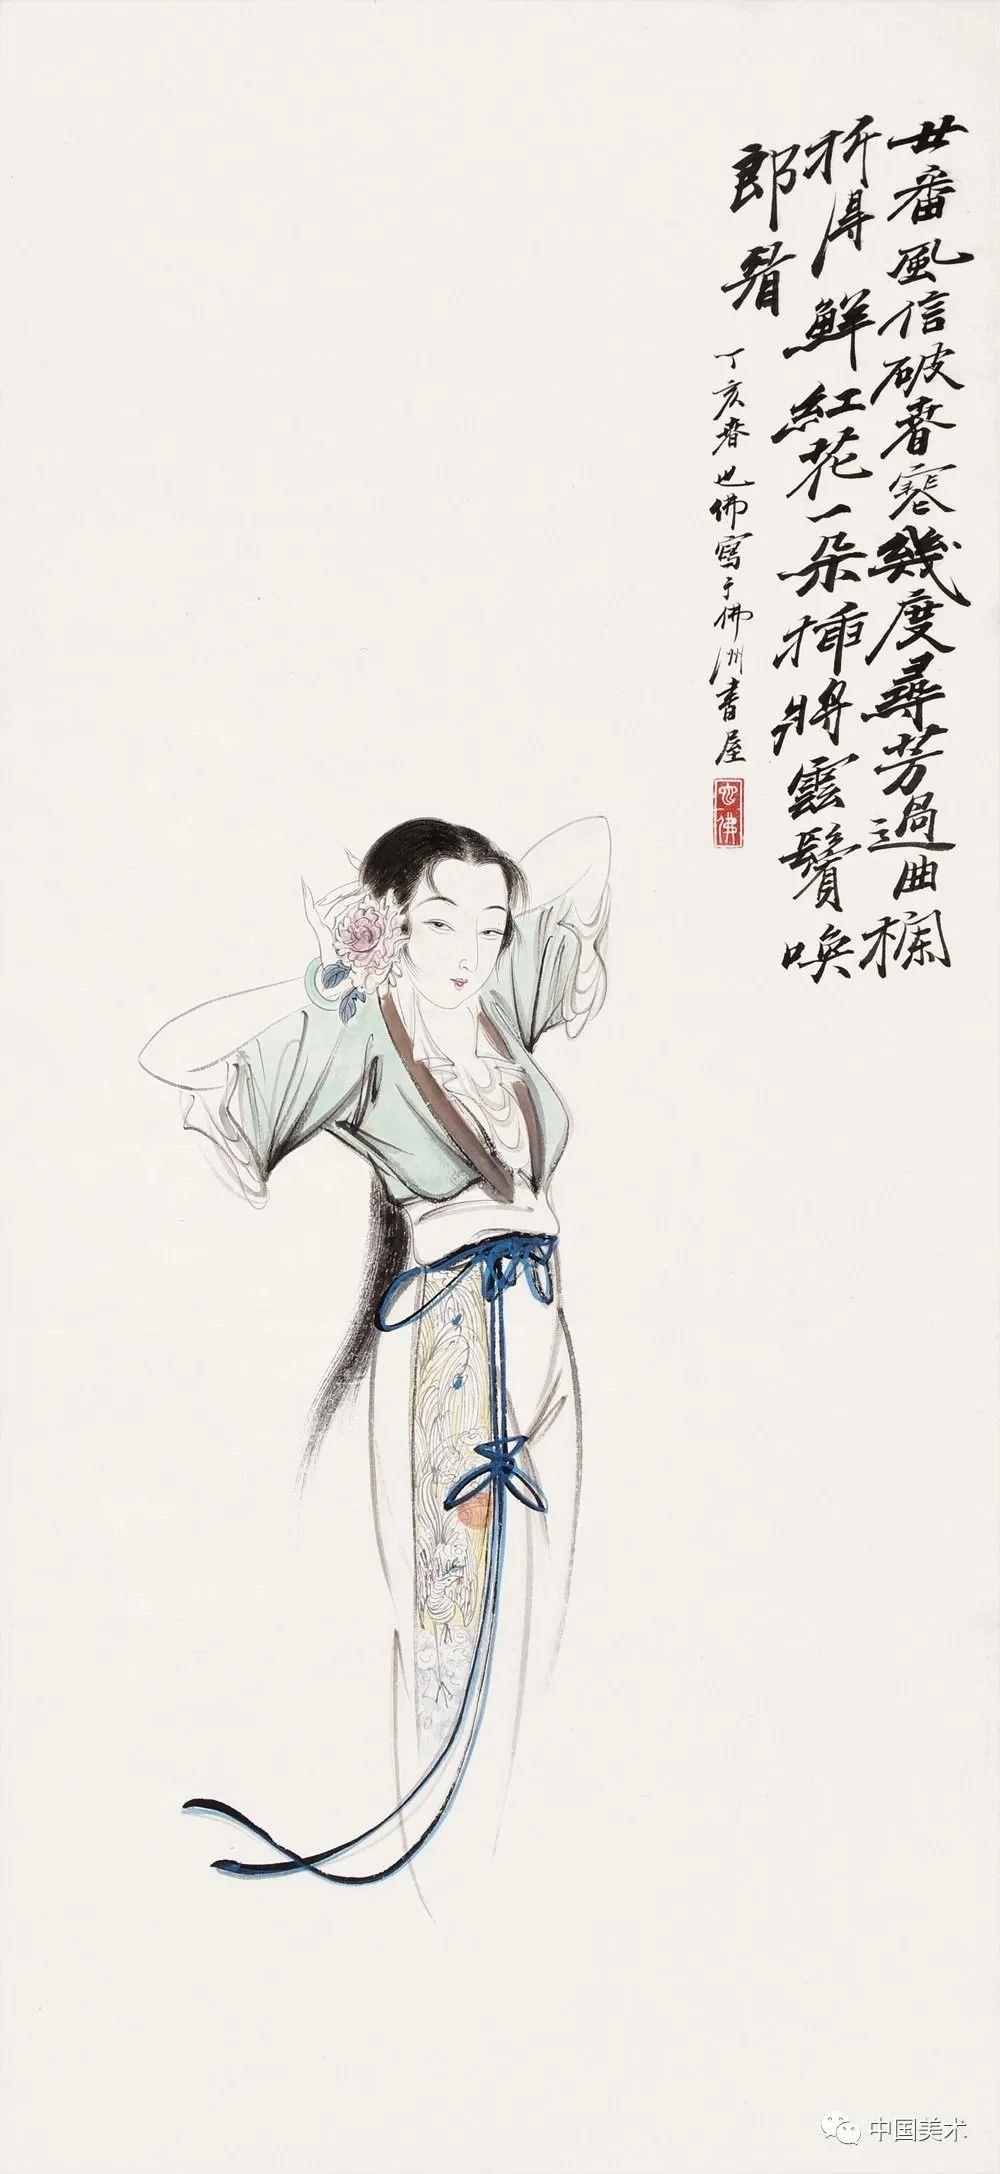 廿番風信破春寒幾度尋芳過曲欄
折得鮮紅花一朵插將雲鬢喚
郎看
丁亥春也佛寫于佛洲書屋
也佛
中国美术